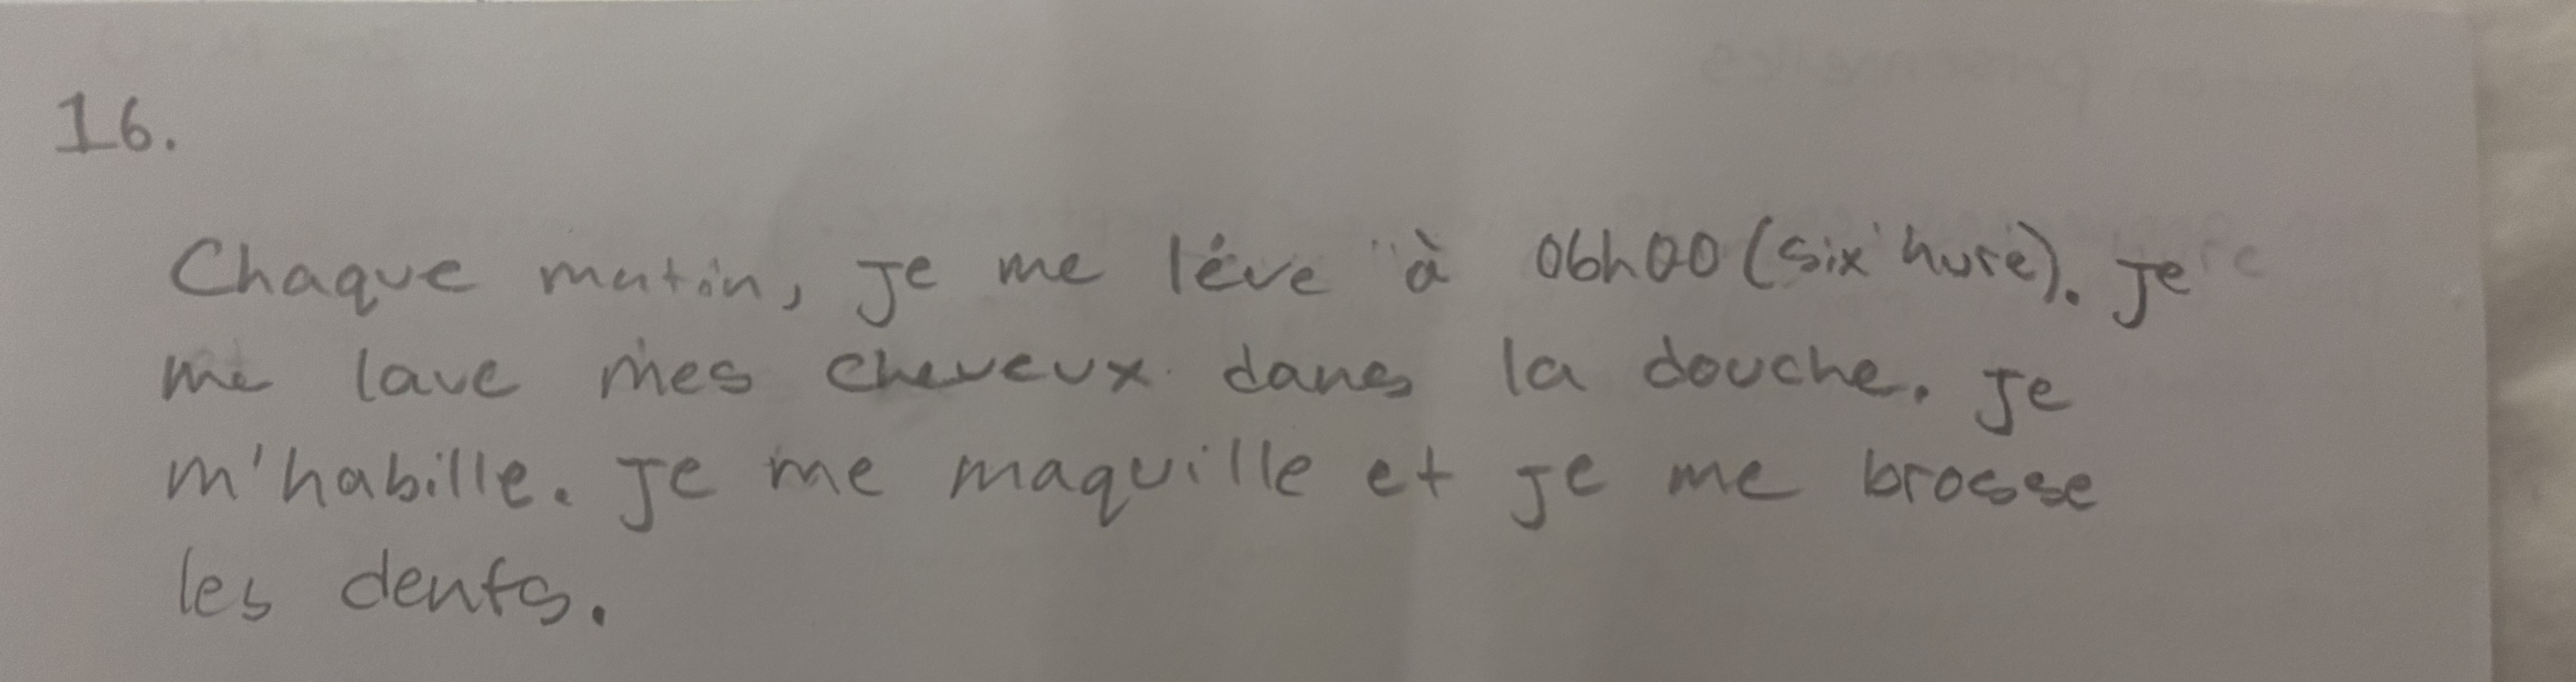 16.
Chaque matin, je me léve à 06h00 (six hure). je
me lave mes cheveux dans la douche. Je
m'habille. Je me maquille et je me brosse
les dents.